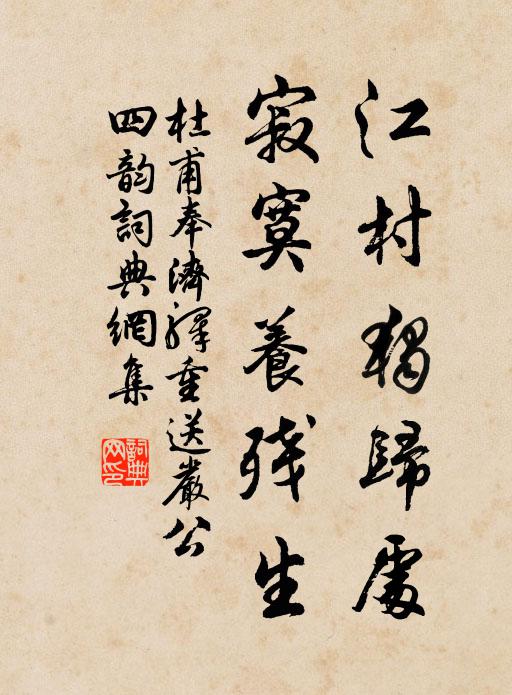 江村獨歸處
寂寞養殘生
杜甫奉濟驛重送嚴公
四韵詞典網集
詞典網印